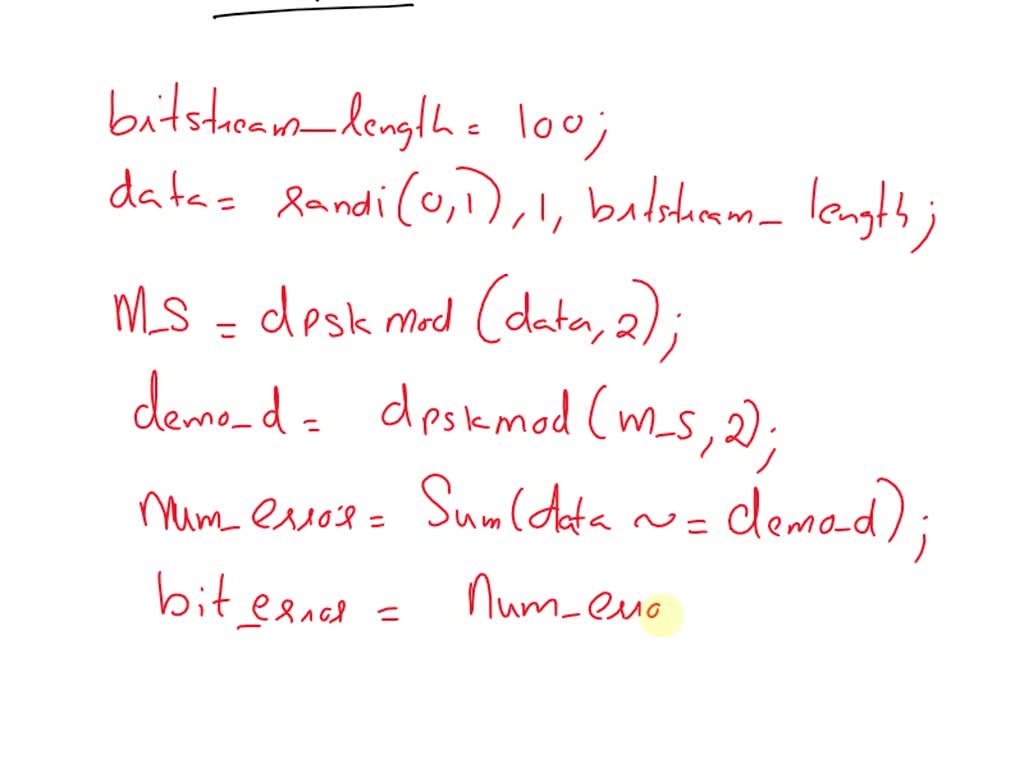 bitstream_length = 100;
data = randi(0,1),1, bitstream_length;
M_S = dpskmod(data,2);
demo_d = dpskmod(m_s,2);
num_error = Sum(data ~= demo_d);
bit_error = Num_erro